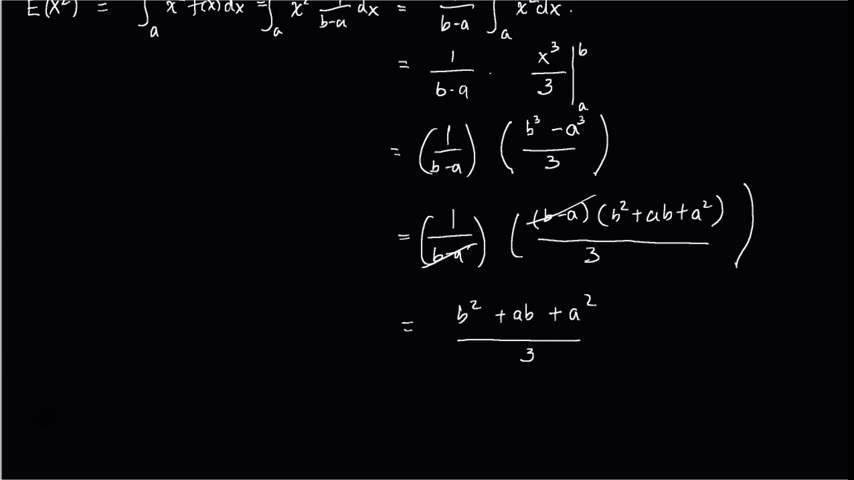 E(X²) = ∫ₐ x f(x)dx = ∫ₐ x² 1/(b-a) dx = 1/(b-a) ∫ₐ x² dx.
= 1/(b-a) · x³/3 |ₐᵇ
= (1/(b-a)) ((b³ - a³)/3)
= (1/(b-a)) ((b-a)(b² + ab + a²)/3)
= (b² + ab + a²)/3